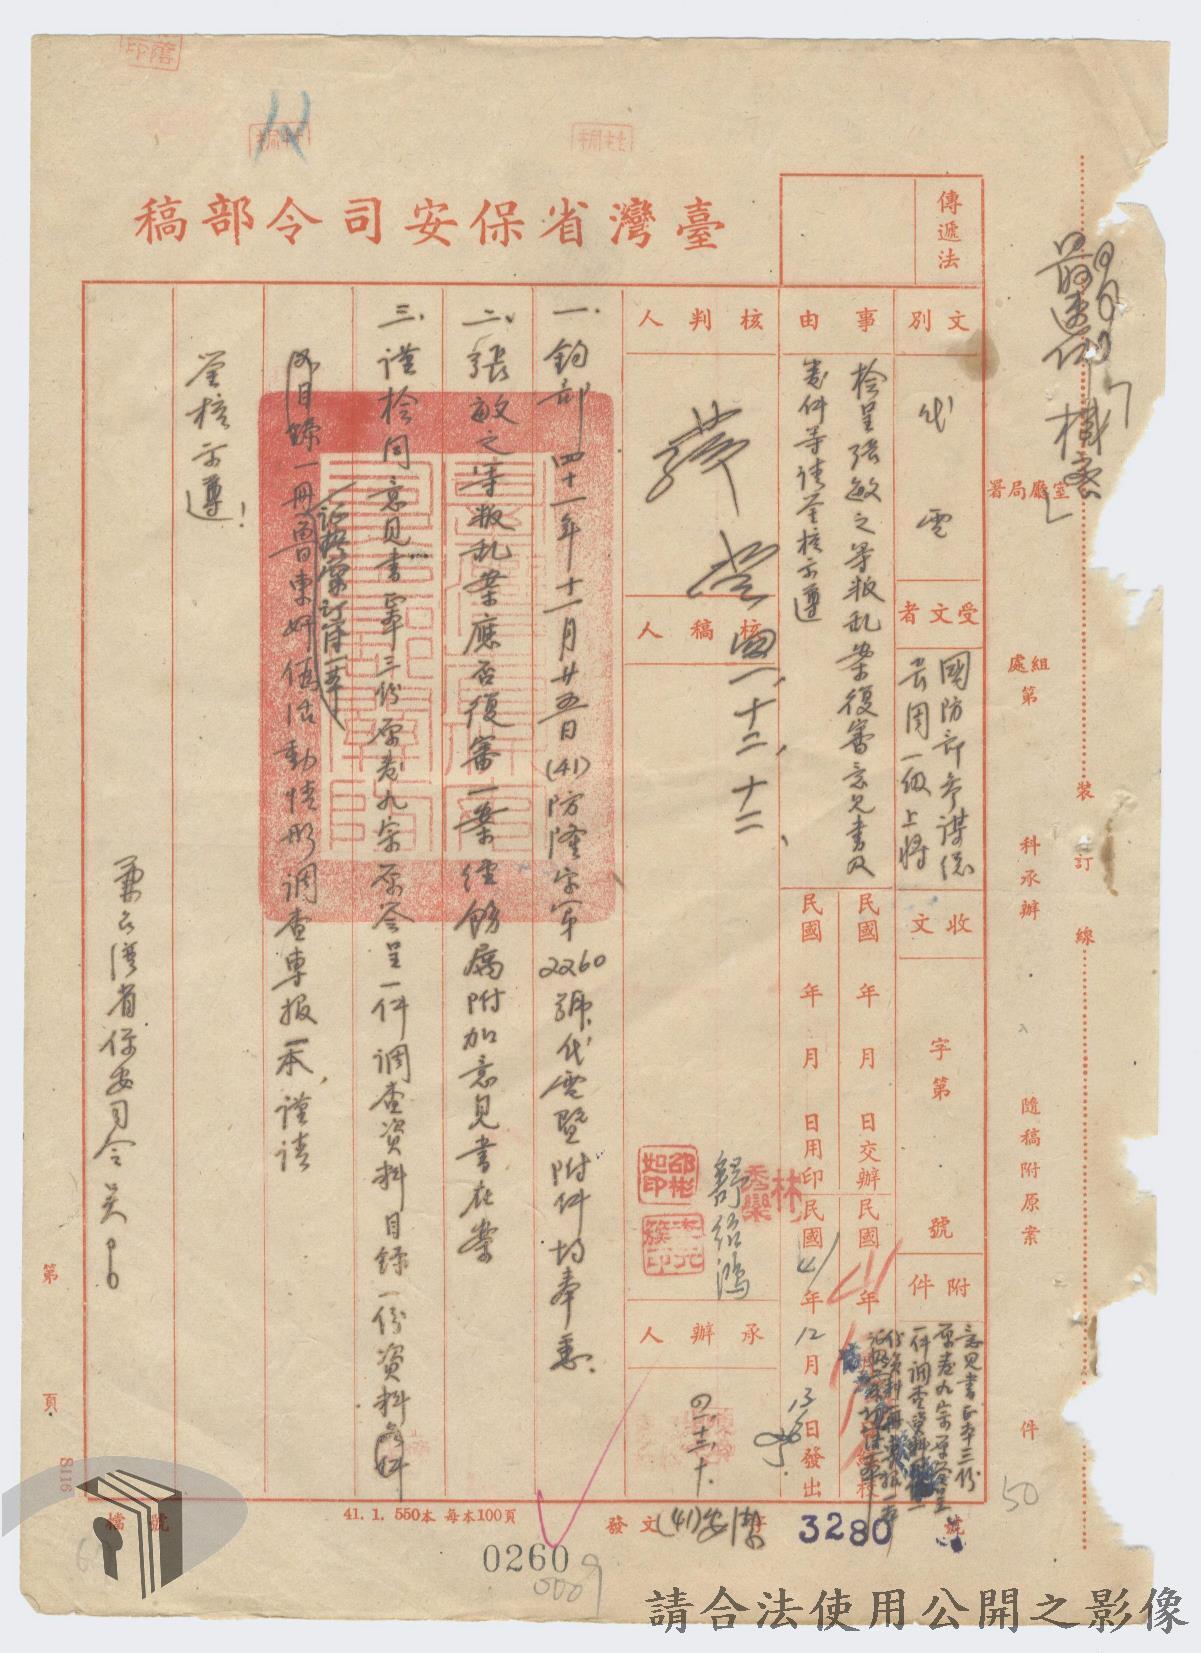 臺灣省保安司令部稿
傳遞法
最速件
機密
室廳局署
組處第
科承辦
隨稿附原案
件
裝訂線
文別
代電
受文者
國防部參謀總長周一級上將
收文
字第
號
附件
意見書正本三份
原卷九宗原簽呈
一件調查資料
事由
檢呈張敏之等叛亂案復審意見書及
卷件等請鑒核示遵
民國 年 月 日交辦
民國 年 月 日用印
民國41年
民國41年12月13日發出
核判人
核稿人
一、十二、十二、
林秀欒
舒紹鴻
邵彬如印
承辦人
四一、十二、十、
一、鈞部四十一年十一月廿五日(41)防隆字第2260號代電暨附件均奉悉。
二、張敏之等叛亂案應否復審一案經飭屬附加意見書在案
三、謹檢同意見書單三份原卷九宗原簽呈一件調查資料目錄一份資料
證據原訂一本
目錄一冊魯東奸偽活動情形調查專報一本,謹請
鑒核示遵!
兼台灣省保安司令吳
第 頁
8116
檔號
41. 1. 550本 每本100頁
發文(41)安潔字3280號
0260
0009
50
請合法使用公開之影像